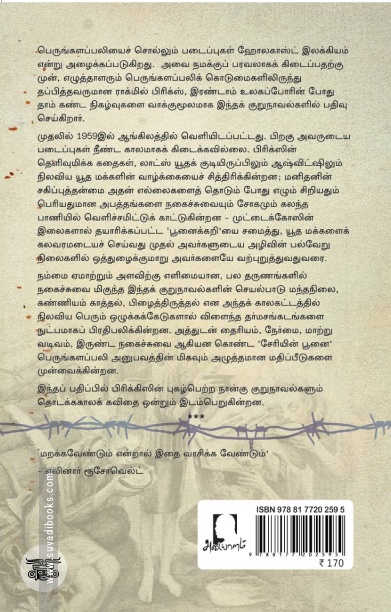 பெருங்களப்பலியைச் சொல்லும் படைப்புகள் ஹோலகாஸ்ட் இலக்கியம்
என்று அழைக்கப்படுகிறது. அவை நமக்குப் பரவலாகக் கிடைப்பதற்கு
முன், எழுத்தாளரும் பெருங்களப்பலிக் கொடுமைகளிலிருந்து
தப்பித்தவருமான ராக்மில் பிரிக்ஸ், இரண்டாம் உலகப்போரின் போது
தாம் கண்ட நிகழ்வுகளை வாக்குமூலமாக இந்தக் குறுநாவல்களில் பதிவு
செய்கிறார்.
முதலில் 1959இல் ஆங்கிலத்தில் வெளியிடப்பட்டது. பிறகு அவருடைய
படைப்புகள் நீண்ட காலமாகக் கிடைக்கவில்லை. பிரிக்ஸின்
தெளிவுமிக்க கதைகள், லாட்ஸ் யூதக் குடியிருப்பிலும் ஆஷ்விட்ஷிலும்
நிலவிய யூத மக்களின் வாழ்க்கையைச் சித்திரிக்கின்றன; மனிதனின்
சகிப்புத்தன்மை அதன் எல்லைகளைத் தொடும் போது எழும் சிறியதும்
பெரியதுமான அபத்தங்களை நகைச்சுவையும் சோகமும் கலந்த
பாணியில் வெளிச்சமிட்டுக் காட்டுகின்றன – முட்டைக்கோஸின்
இலைகளால் தயாரிக்கப்பட்ட 'பூனைக்கறி'யை சமைத்து, யூத மக்களைக்
கலவரமடையச் செய்வது முதல் அவர்களுடைய அழிவின் பல்வேறு
நிலைகளில் ஒத்துழைக்குமாறு அவர்களையே வற்புறுத்துவதுவரை.
நம்மை ஏமாற்றும் அளவிற்கு எளிமையான, பல தருணங்களில்
நகைச்சுவை மிகுந்த இந்தக் குறுநாவல்களின் செயல்பாடு மந்தநிலை,
கண்ணியம் காத்தல், பிழைத்திருத்தல் என அந்தக் காலகட்டத்தில்
நிலவிய பெரும் ஒழுக்கக்கேடுகளால் விளைந்த தர்மசங்கடங்களை
நுட்பமாகப் பிரதிபலிக்கின்றன. அத்துடன் தைரியம், நேர்மை, மாற்று
வடிவம், இருண்ட நகைச்சுவை ஆகியன கொண்ட 'சேரியின் பூனை'
பெருங்களப்பலி அனுபவத்தின் மிகவும் அழுத்தமான மதிப்பீடுகளை
முன்வைக்கின்றன.
இந்தப் பதிப்பில் பிரிக்ஸின் புகழ்பெற்ற நான்கு குறுநாவல்களும்
தொடக்ககாலக் கவிதை ஒன்றும் இடம்பெறுகின்றன.
***
மறக்கவேண்டும் என்றால் இதை வாசிக்க வேண்டும்'
– எலினார் ரூசோவெல்ட்
suvadibooks.com
அடையாளம்
ISBN 978 81 7720 259 5
9 788177 202595
₹ 170